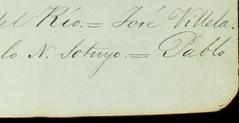 del Río.= José Villela.
lo N. Sotuyo.= Pablo